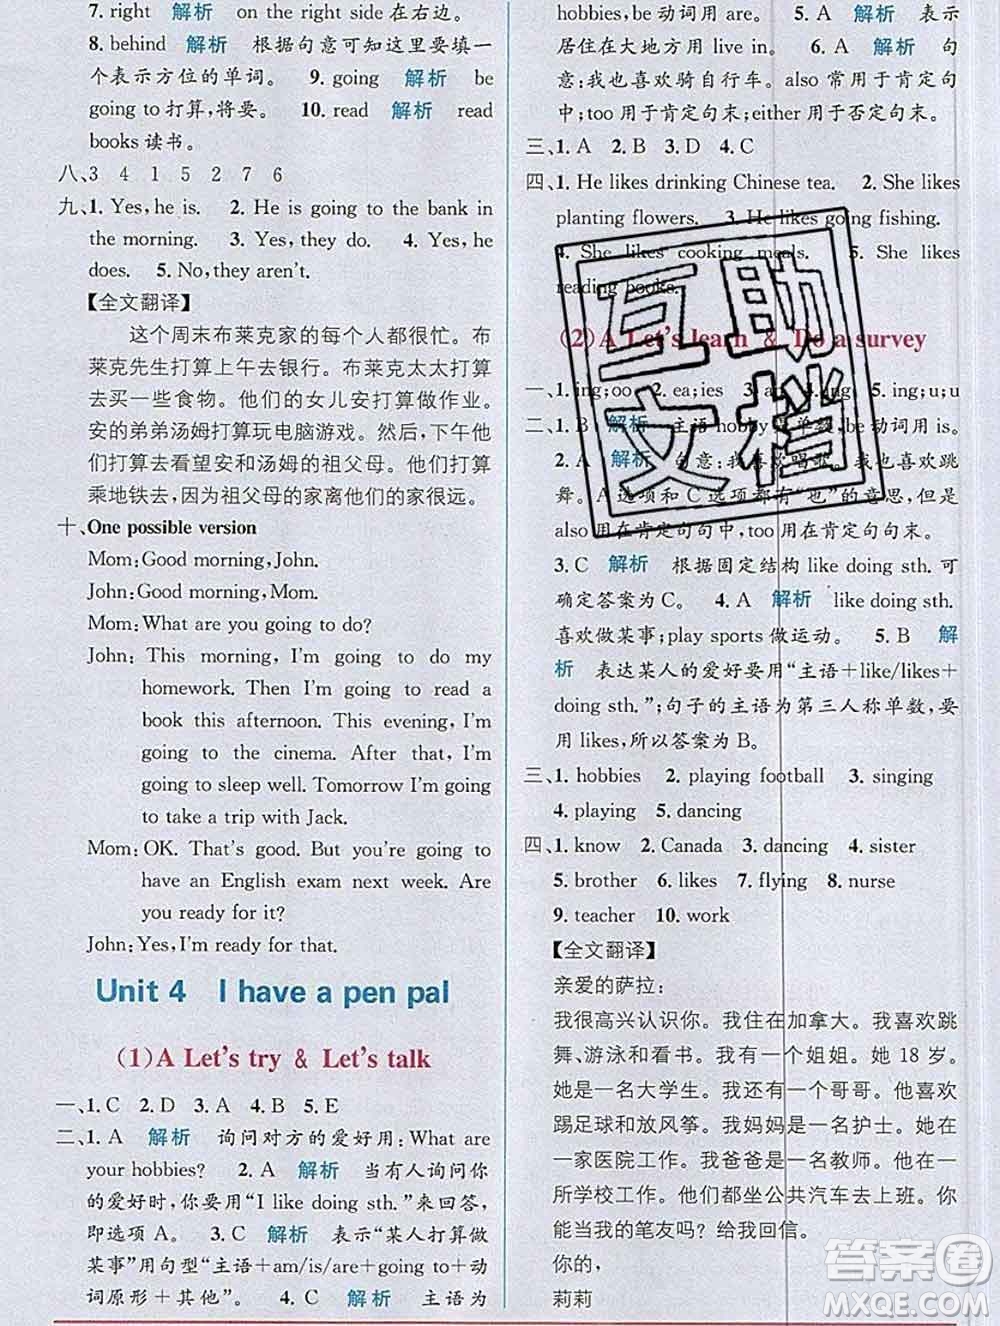 7. right 解析 on the right side 在右边。
8. behind 解析 根据句意可知这里要填一
个表示方位的单词。 9. going 解析 be
going to 打算,将要。 10. read 解析 read
books 读书。
八、3 4 1 5 2 7 6
九、1. Yes, he is. 2. He is going to the bank in
the morning. 3. Yes, they do. 4. Yes, he
does. 5. No, they aren't.
【全文翻译】
这个周末布莱克家的每个人都很忙。布
莱克先生打算上午去银行。布莱克太太打算
去买一些食物。他们的女儿安打算做作业。
安的弟弟汤姆打算玩电脑游戏。然后,下午他
们打算去看望安和汤姆的祖父母。他们打算
乘地铁去,因为祖父母的家离他们的家很远。
十、One possible version
Mom: Good morning, John.
John: Good morning, Mom.
Mom: What are you going to do?
John: This morning, I'm going to do my
homework. Then I'm going to read a
book this afternoon. This evening, I'm
going to the cinema. After that, I'm
going to sleep well. Tomorrow I'm going
to take a trip with Jack.
Mom: OK. That's good. But you're going to
have an English exam next week. Are
you ready for it?
John: Yes, I'm ready for that.
Unit 4 I have a pen pal
(1) A Let's try & Let's talk
一、1. C 2. D 3. A 4. B 5. E
二、1. A 解析 询问对方的爱好用:What are
your hobbies? 2. A 解析 当有人询问你
的爱好时,你要用“I like doing sth.”来回答,
即选项 A。 3. C 解析 表示“某人打算做
某事”用句型“主语+am/is/are+going to+动
词原形+其他”。 4. C 解析 主语为
hobbies, be 动词用 are。 5. A 解析 表示
居住在大地方用 live in。 6. A 解析 句
意:我也喜欢骑自行车。also 常用于肯定句
中;too 用于肯定句末;either 用于否定句末。
三、1. A 2. B 3. D 4. C
四、1. He likes drinking Chinese tea. 2. She likes
planting flowers. 3. He likes going fishing.
4. She likes cooking meals. 5. He likes
reading books.
(2) A Let's learn & Do a survey
一、1. ing;oo 2. ea;ies 3. an 4. ing 5. ing;u;u
二、1. B 解析 主语 hobby 是单数,be 动词用 is。
2. A 解析 句意:我喜欢唱歌。我也喜欢跳
舞。A 选项和 C 选项都有“也”的意思,但是
also 用在肯定句句中,too 用在肯定句句末。
3. C 解析 根据固定结构 like doing sth. 可
确定答案为 C。 4. A 解析 like doing sth.
喜欢做某事;play sports 做运动。 5. B 解
析 表达某人的爱好要用“主语+like/likes+
doing sth.”;句子的主语为第三人称单数,要
用 likes,所以答案为 B。
三、1. hobbies 2. playing football 3. singing
4. playing 5. dancing
四、1. know 2. Canada 3. dancing 4. sister
5. brother 6. likes 7. flying 8. nurse
9. teacher 10. work
【全文翻译】
亲爱的萨拉:
我很高兴认识你。我住在加拿大。我喜欢跳
舞、游泳和看书。我有一个姐姐。她 18 岁。
她是一名大学生。我还有一个哥哥。他喜欢
踢足球和放风筝。我妈妈是一名护士。她在
一家医院工作。我爸爸是一名教师。他在一
所学校工作。他们都坐公共汽车去上班。你
能当我的笔友吗?给我回信。
你的,
莉莉
互助
文档
答案圈
MXQE.COM